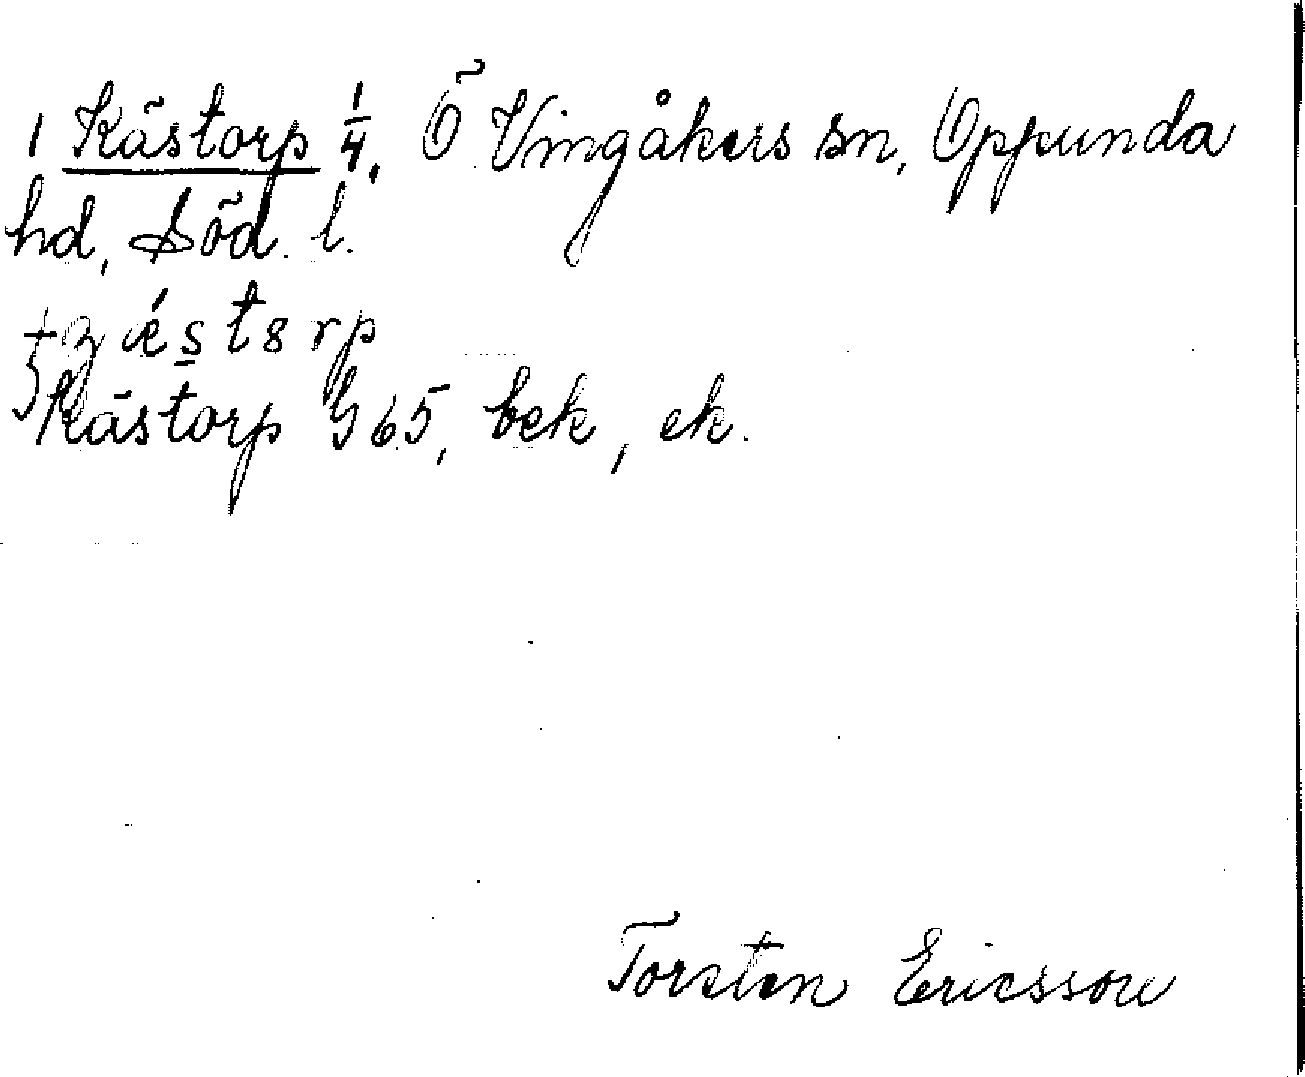 1 Kästorp 1/4, Ö Vingåkers sn, Oppunda
hd, Söd. l.
ɟǽs̲tørp
Kästorp G 65, bek, ek.
Torsten Ericsson